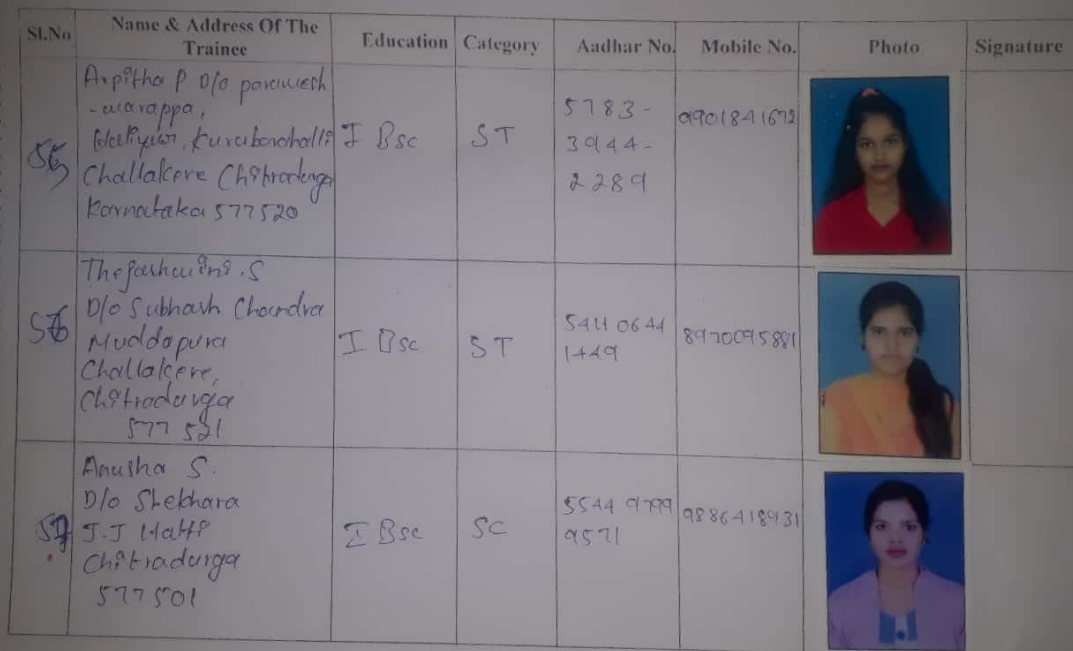 Sl.No
Name & Address Of The
Trainee
Education
Category
Aadhar No.
Mobile No.
Photo
Signature
Arpitha P D/o
-warappa,
Challakere Chitradurga
Karnataka 577520
I Bsc
ST
5783-
3944-
2289
9901841672
D/o Subhash Chandra
Muddapura
Challakere,
Chitradurga
577 521
I Bsc
ST
0644
1449
8970095881
Anusha S.
D/o
J.J Hatti
Chitradurga
577501
I Bsc
SC
5544 9799
9571
9886418931